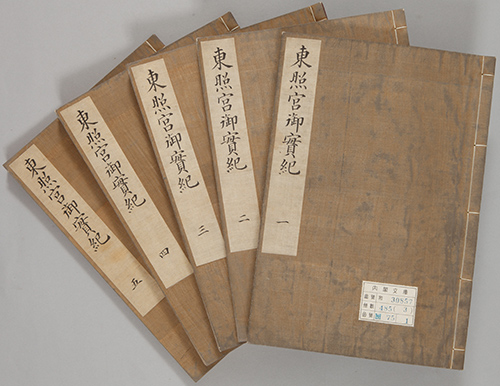 東照宮御實紀 一
東照宮御實紀 二
東照宮御實紀 三
東照宮御實紀 四
東照宮御實紀 五
內閣文庫
番號 和 30857
冊數 4851
函號 75 1